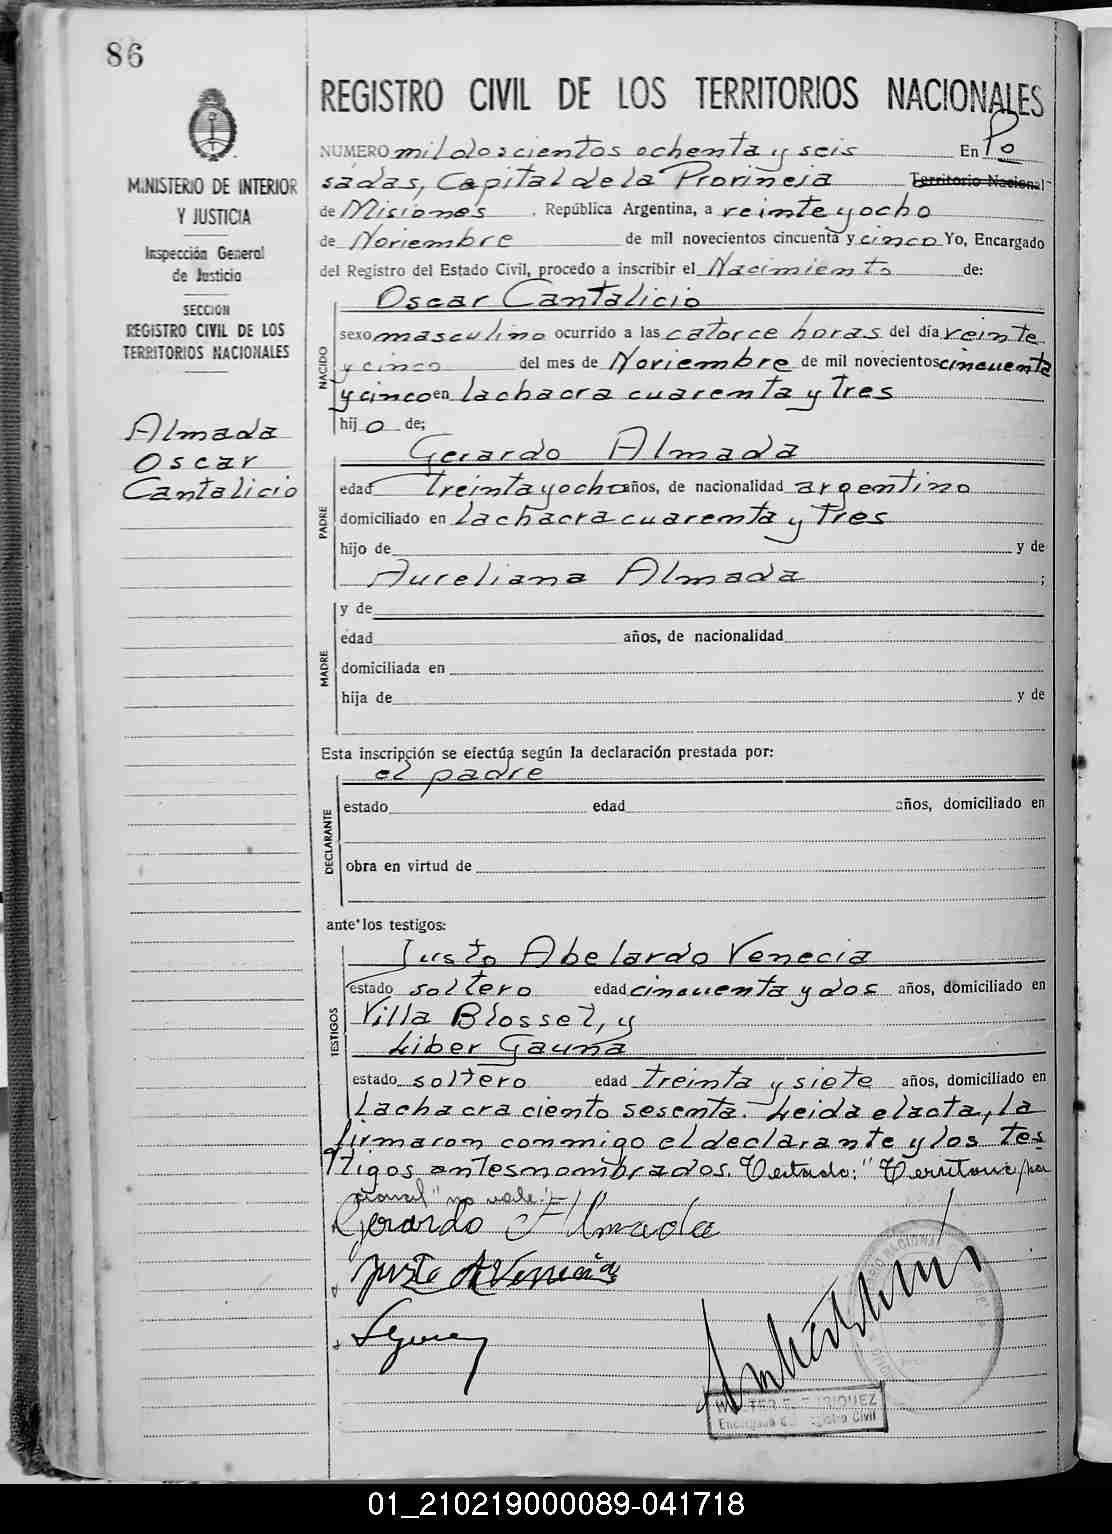 86
MINISTERIO DE INTERIOR
Y JUSTICIA
Inspección General
de Justicia
SECCION
REGISTRO CIVIL DE LOS
TERRITORIOS NACIONALES
Almada
Oscar
Cantalicio
REGISTRO CIVIL DE LOS TERRITORIOS NACIONALES
NUMERO mil doscientos ochenta y seis En Po
sadas, Capital de la Provincia Territorio Nacional
de Misiones, República Argentina, a veinte y ocho
de Noviembre de mil novecientos cincuenta y cinco Yo, Encargado
del Registro del Estado Civil, procedo a inscribir el Nacimiento de:
NACIDO
Oscar Cantalicio
sexo masculino ocurrido a las catorce horas del día veinte
y cinco del mes de Noviembre de mil novecientos cincuenta
y cinco en la chacra cuarenta y tres
hijo de;
PADRE
Gerardo Almada
edad treinta y ocho años, de nacionalidad argentino
domiciliado en la chacra cuarenta y tres
hijo de y de
Aureliana Almada ;
MADRE
y de
edad años, de nacionalidad
domiciliada en
hija de y de
Esta inscripción se efectúa según la declaración prestada por:
el padre
DECLARANTE
estado edad años, domiciliado en
obra en virtud de
ante los testigos:
TESTIGOS
Justo Abelardo Venecia
estado soltero edad cincuenta y dos años, domiciliado en
Villa Blosset, y
Liber Gauna
estado soltero edad treinta y siete años, domiciliado en
La chacra ciento sesenta. Leida el acta, la
firmaron conmigo el declarante y los tes
tigos antes nombrados. Testado: "Territorio Na
cional" no vale.
Gerardo Almada
Justo A Venecia
Encargado del Registro Civil
01_210219000089-041718